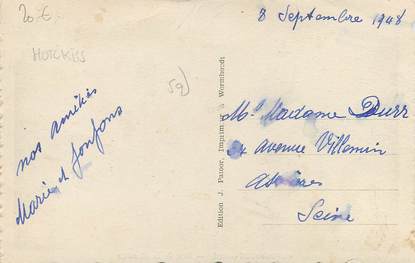 20 €
HOTCKISS
59)
8 Septembre 1948
nos amitiés
Marie et fonfons
Edition J. Pauoor, Imprimeur à Wormhoudt
Mr Madame Durr
avenue Villemin
Seine